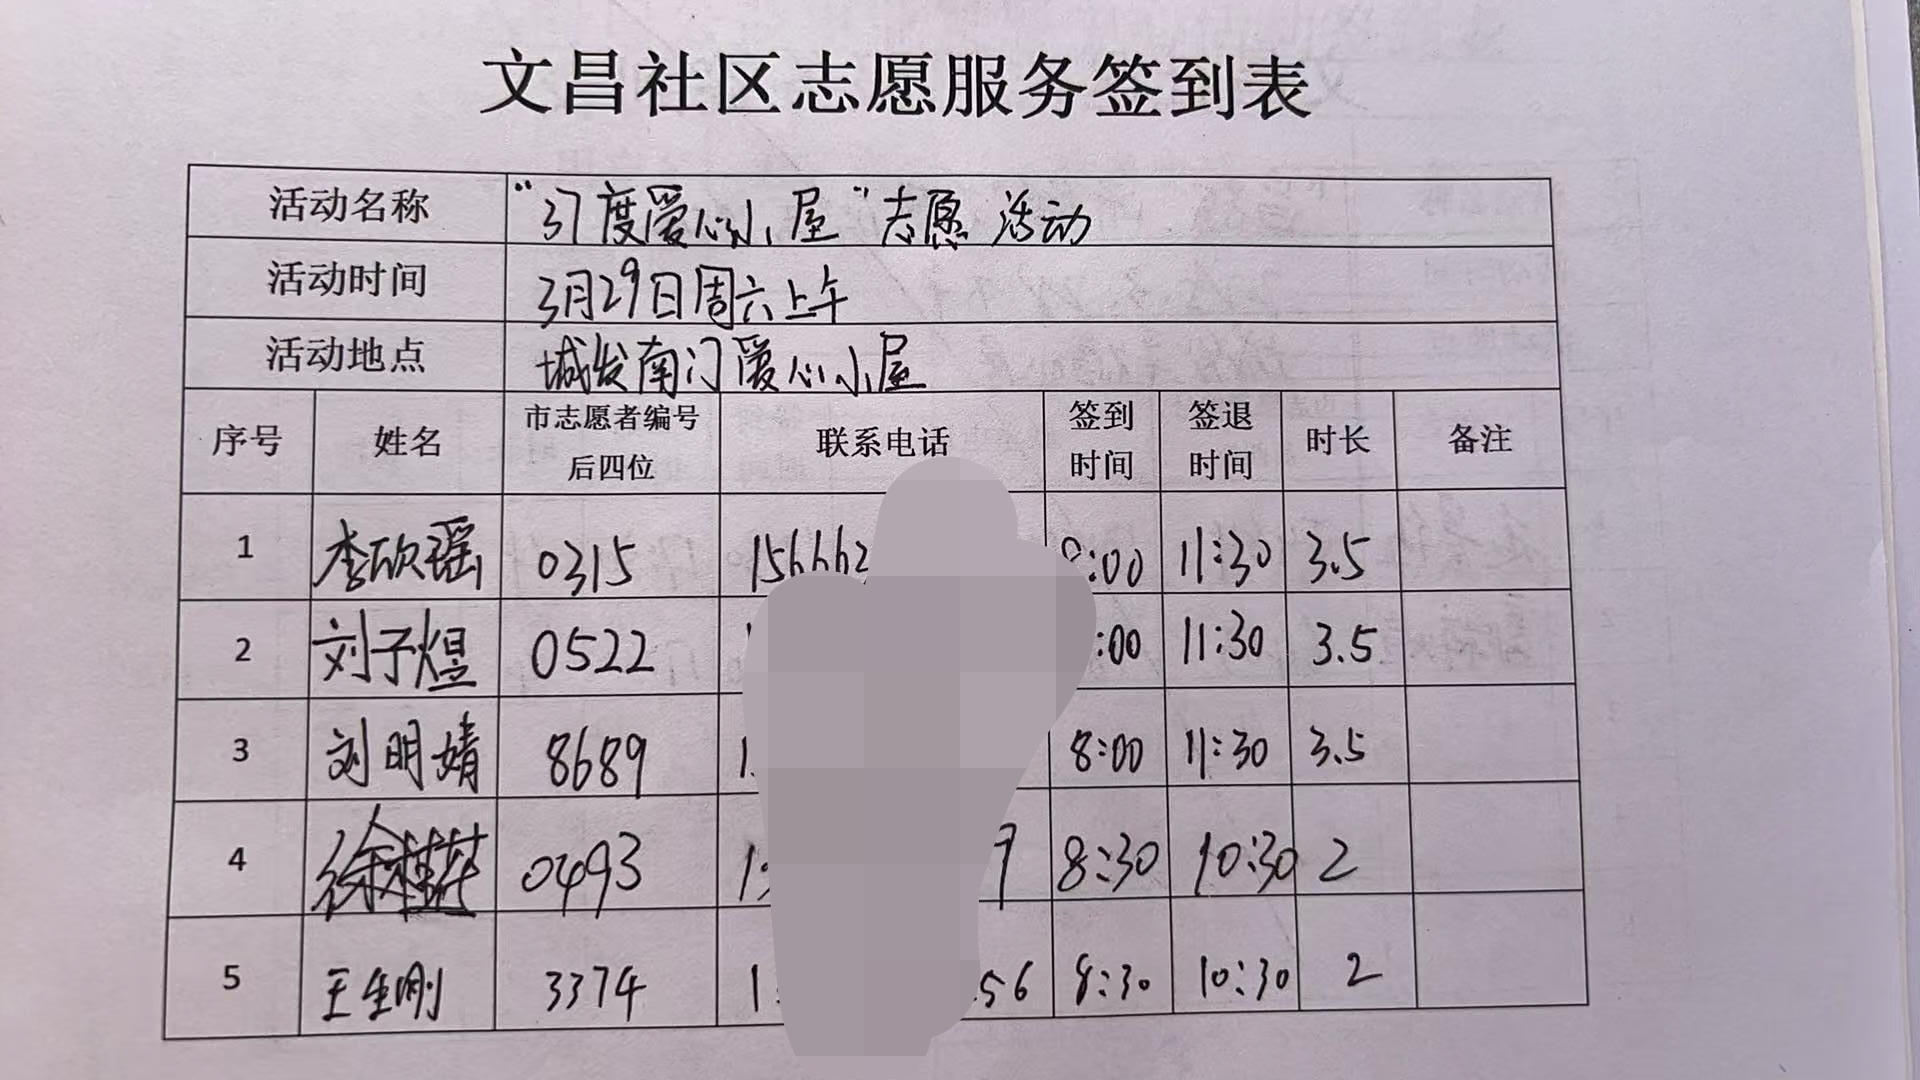 文昌社区志愿服务签到表
活动名称 “37度爱心小屋”志愿活动
活动时间 3月29日周六上午
活动地点 城发南门爱心小屋
序号 姓名 市志愿者编号后四位 联系电话 签到时间 签退时间 时长 备注
1 李欣瑶 0315 156662 8:00 11:30 3.5
2 刘子煜 0522 :00 11:30 3.5
3 刘明婧 8689 1 8:00 11:30 3.5
4 徐桂萍 0493 1 9 8:30 10:30 2
5 王生刚 3374 1 56 8:30 10:30 2